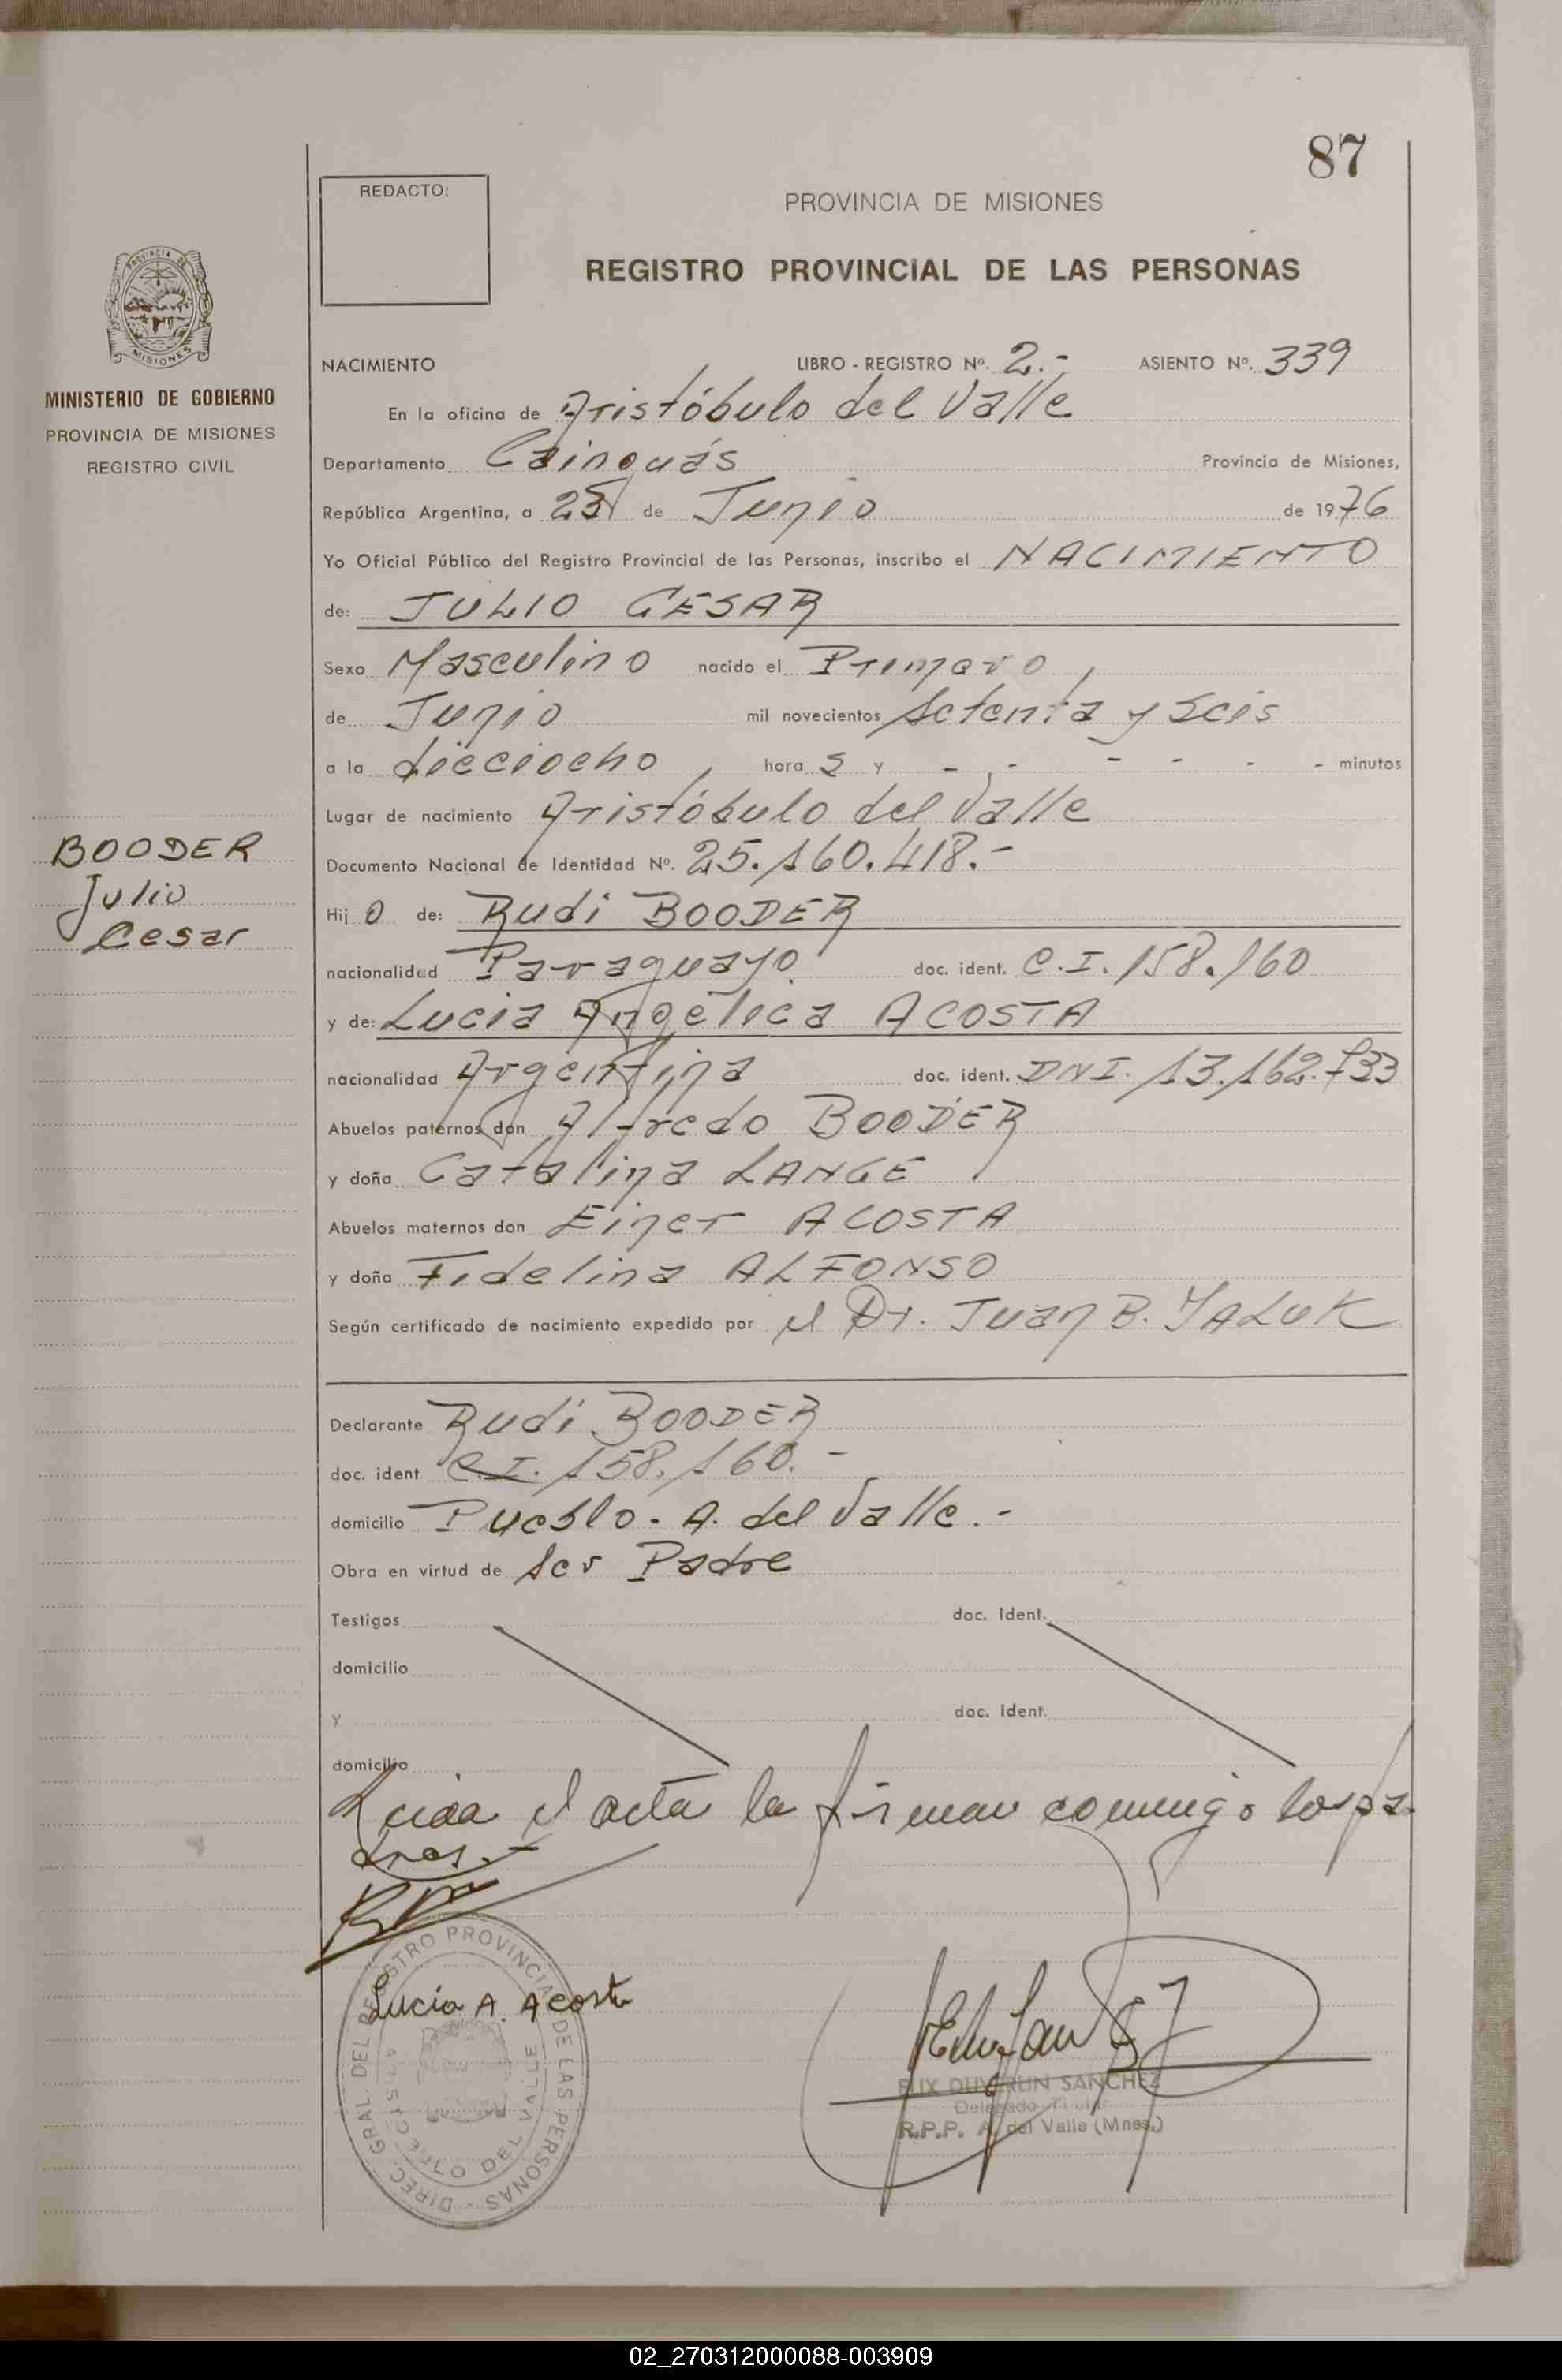 87
REDACTO:
PROVINCIA DE MISIONES
REGISTRO PROVINCIAL DE LAS PERSONAS
PROVINCIA DE
MISIONES
MINISTERIO DE GOBIERNO
PROVINCIA DE MISIONES
REGISTRO CIVIL
NACIMIENTO LIBRO - REGISTRO Nº. 2.- ASIENTO Nº. 339
En la oficina de Aristóbulo del Valle
Departamento Cainguás Provincia de Misiones,
República Argentina, a de Junio de 1976
Yo Oficial Público del Registro Provincial de las Personas, inscribo el NACIMIENTO
de: JULIO CESAR
Sexo Masculino nacido el Primero
de Junio mil novecientos Setenta y Seis
a la dieciocho hora s y - - - - - - minutos
Lugar de nacimiento Aristóbulo del Valle
BOODER
Julio
Cesar
Documento Nacional de Identidad Nº. 25.160.418.-
Hij o de: Rudi BOODER
nacionalidad Paraguayo doc. ident. C.I. 158.160
y de: Lucia Angélica ACOSTA
nacionalidad Argentina doc. ident. DNI. 13.162.733
Abuelos paternos don Alfredo BOODER
y doña Catalina LANGE
Abuelos maternos don Einer ACOSTA
y doña Fidelina ALFONSO
Según certificado de nacimiento expedido por el Dr. Juan B. YALUK
Declarante Rudi BOODER
doc. ident C.I. 158.160.-
domicilio Pueblo - A. del Valle.-
Obra en virtud de Ser Padre
Testigos doc. ident.
domicilio
y doc. ident.
domicilio
Leida el acta la firman conmigo los pa
dres.-
Lucia A. Acosta
DIREC. GRAL. DEL REGISTRO PROVINCIAL DE LAS PERSONAS
ARISTOBULO DEL VALLE
SANCHEZ
Delegado Titular
R.P.P. A. del Valle (Mnes.)
02_270312000088-003909